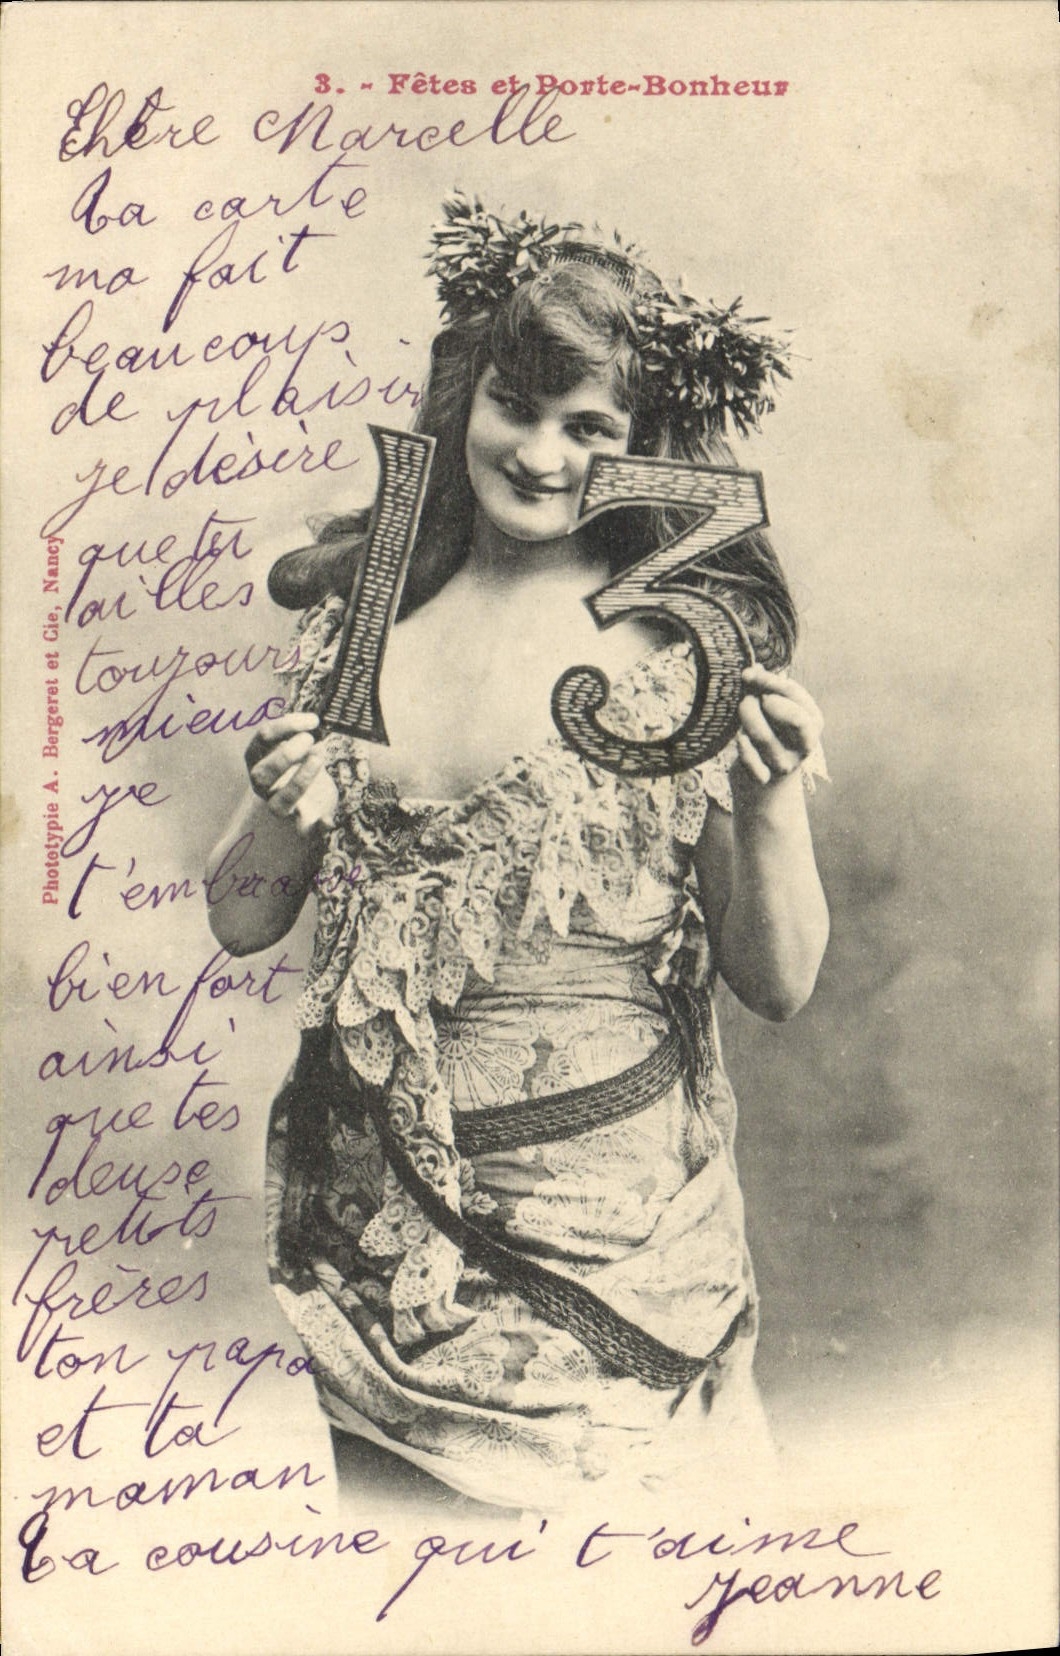 3. - Fêtes et Porte-Bonheur
Chère Marcelle
Ta carte
ma fait
beaucoup
de plaisir
je désire
que tu
ailles
toujours
mieux
je
t'embrasse
bien fort
ainsi
que tes
deux
petits
frères
ton papa
et ta
maman
Ta cousine qui t'aime
Jeanne
Phototypie A. Bergeret et Cie, Nancy
13